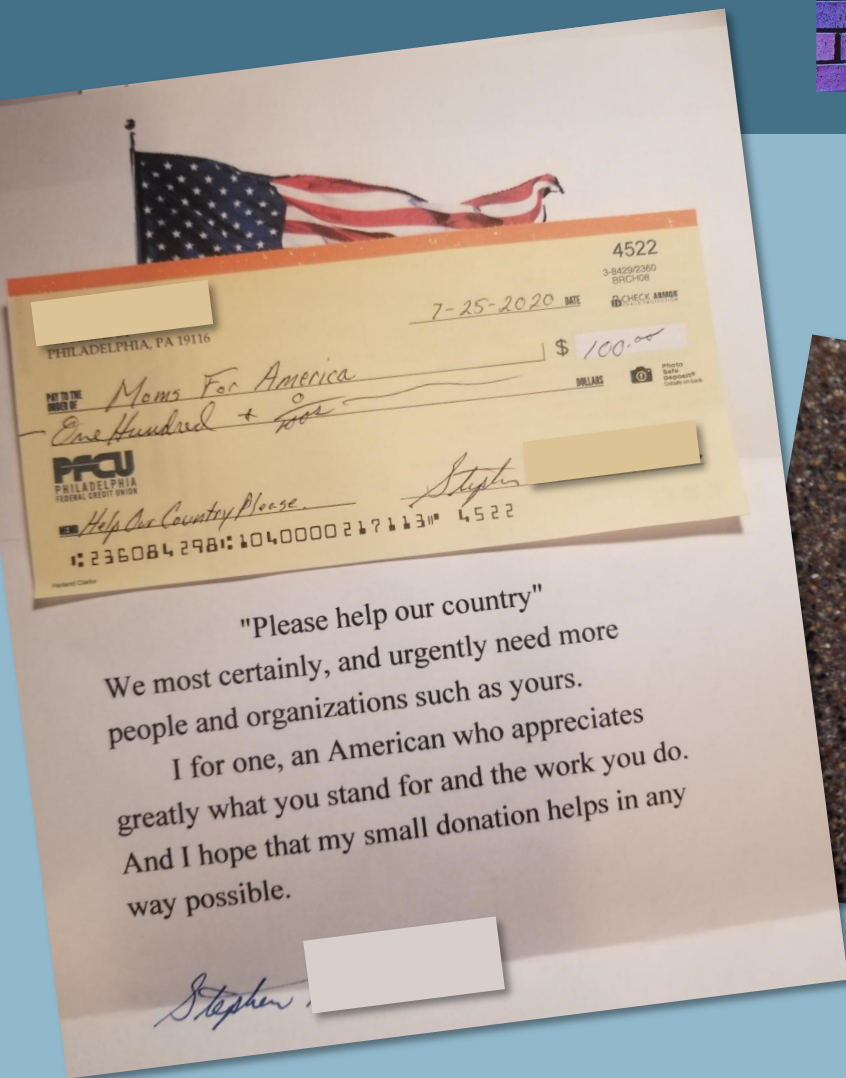 4522
3-8429/2360
BRCH08
7-25-2020 DATE
CHECK ARMOR
PHILADELPHIA, PA 19116
PAY TO THE
ORDER OF
Moms For America
$ 100.00
One Hundred +
DOLLARS
Photo
Safe
Deposit®
Details on back
PFCU
PHILADELPHIA
FEDERAL CREDIT UNION
MEMO Help Our Country Please.
Stephen
Harland Clarke
"Please help our country"
We most certainly, and urgently need more
people and organizations such as yours.
I for one, an American who appreciates
greatly what you stand for and the work you do.
And I hope that my small donation helps in any
way possible.
Stephen